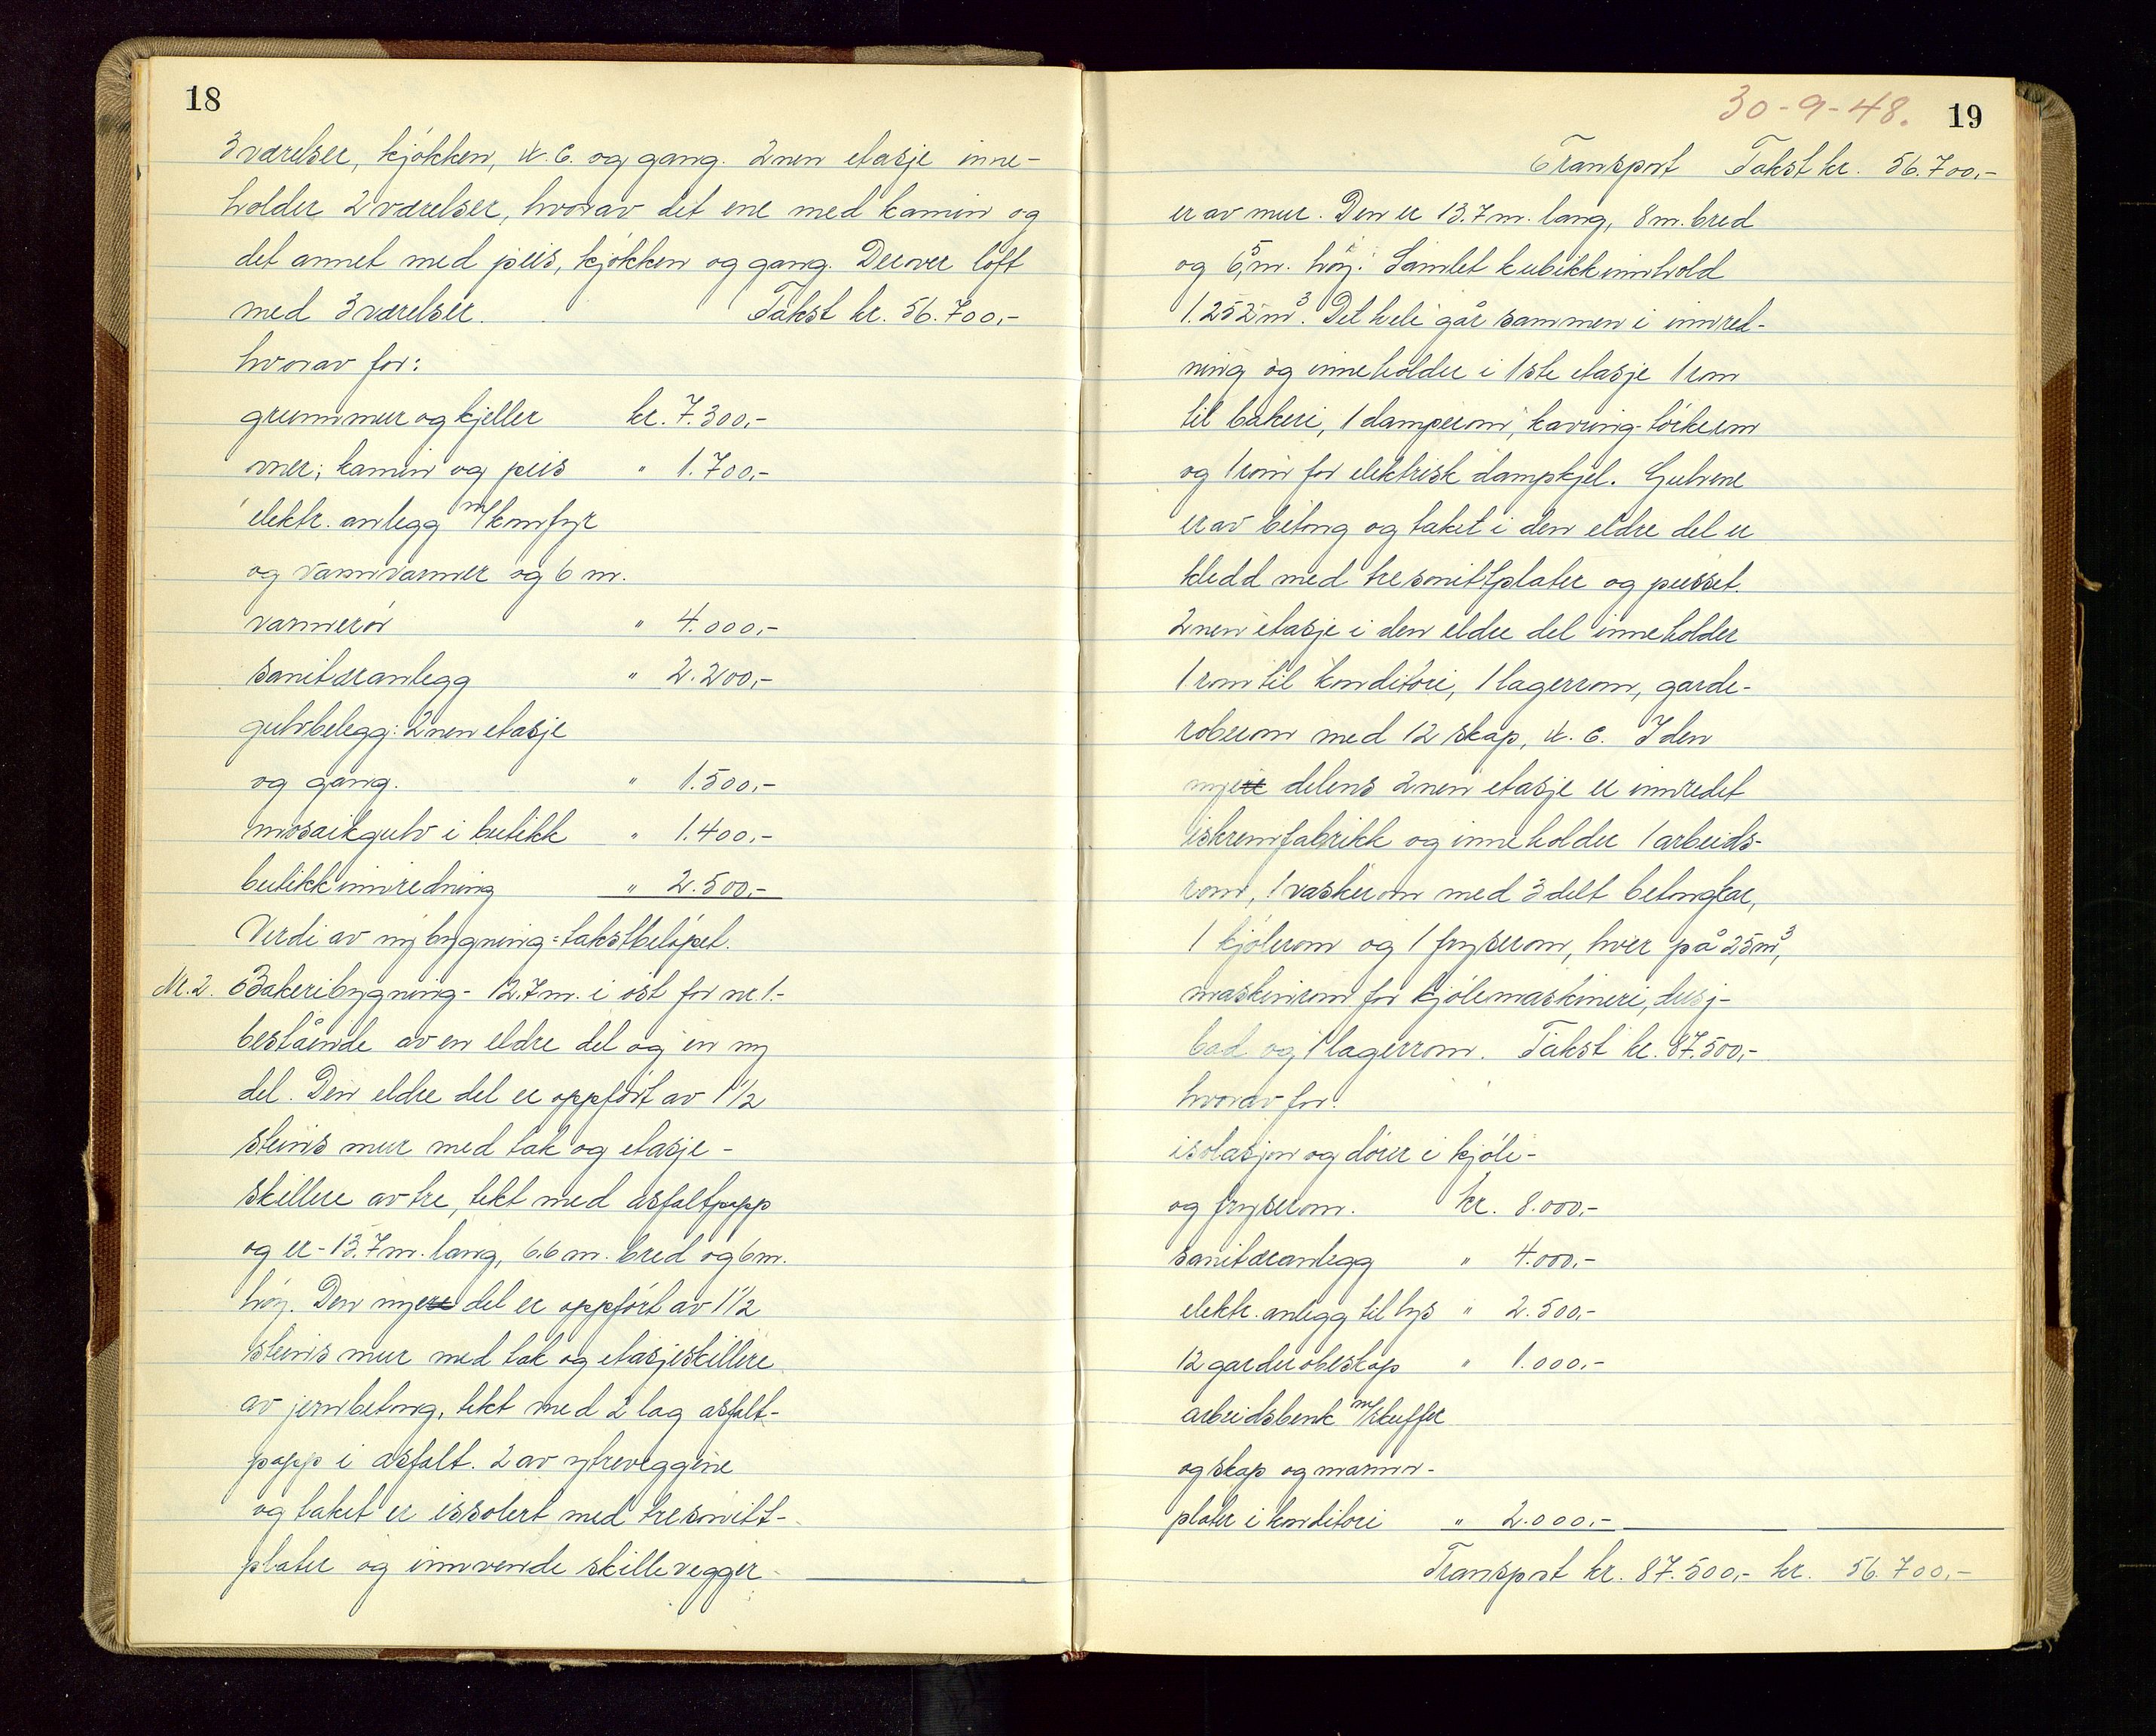 18
3 værelser, kjøkken, W.C. og gang. 2nen etasje inne-
holder 2 værelser, hvorav det ene med kamin og
det annet med peis, kjøkken og gang. Derover loft
med 3 værelser. Takst kr. 56.700,-
hvorav for:
grunnmur og kjeller kr. 7.300,-
ovner, kamin og peis " 1.700,-
elektr. anlegg m/komfyr
og vannvarmer og 6 m.
varmerør " 4.000,-
sanitæranlegg " 2.200,-
gulvbelegg: 2nen etasje
og gang. " 1.500,-
mosaikgulv i butikk " 1.400,-
butikkinnredning " 2.500,-
Verdi av nybygning = takstbeløpet.
Nr. 2. Bakeribygning - 12.7 m. i øst for nr. 1. -
bestående av en eldre del og en ny
del. Den eldre del er oppført av 1 1/2
steins mur med tak og etasje-
skillere av tre, tekt med asfaltpapp
og er - 13.7 m. lang, 6.6 m. bred og 6 m.
høy. Den nyere del er oppført av 1 1/2
steins mur med tak og etasjeskillere
av jernbetong, tekt med 2 lag asfalt-
papp i asfalt. 2 av ytreveggene
og taket er issolert med tresnitt-
plater og innvende skillevegger
30-9-48. 19
Transport Takst kr. 56.700,-
er av mur. Den er 13.7 m. lang, 8 m. bred
og 6,5 m. høy. Samlet kubikkinnhold
1.252 m³. Det hele går sammen i innred-
ning og inneholder i 1ste etasje 1 rom
til bakeri, 1 damperom, kavring-tørkerom
og 1 rom for elektrisk dampkjel. Gulvene
er av betong og taket i den eldre del er
kledd med tresnittplater og pusset.
2nen etasje i den eldre del inneholder
1 rom til konditori, 1 lagerrom, garde-
roberom med 12 skap, W.C. I den
nyere delens 2nen etasje er innredet
iskremfabrikk og inneholder 1 arbeids-
rom, 1 vaskerom med 3 delt betongkar,
1 kjølerom og 1 fryserom, hver på 25 m³,
maskinrom for kjølemaskineri, dusj-
bad og 1 lagerrom. Takst kr. 87.500,-
hvorav for:
isolasjon og dører i kjøle-
og fryserom. kr. 8.000,-
sanitæranlegg " 4.000,-
elektr. anlegg til lys " 2.500,-
12 garderobeskap " 1.000,-
arbeidsbenk m/skuffer
og skap og marmor-
plater i konditori " 2.000,-
Transport kr. 87.500,- kr. 56.700,-